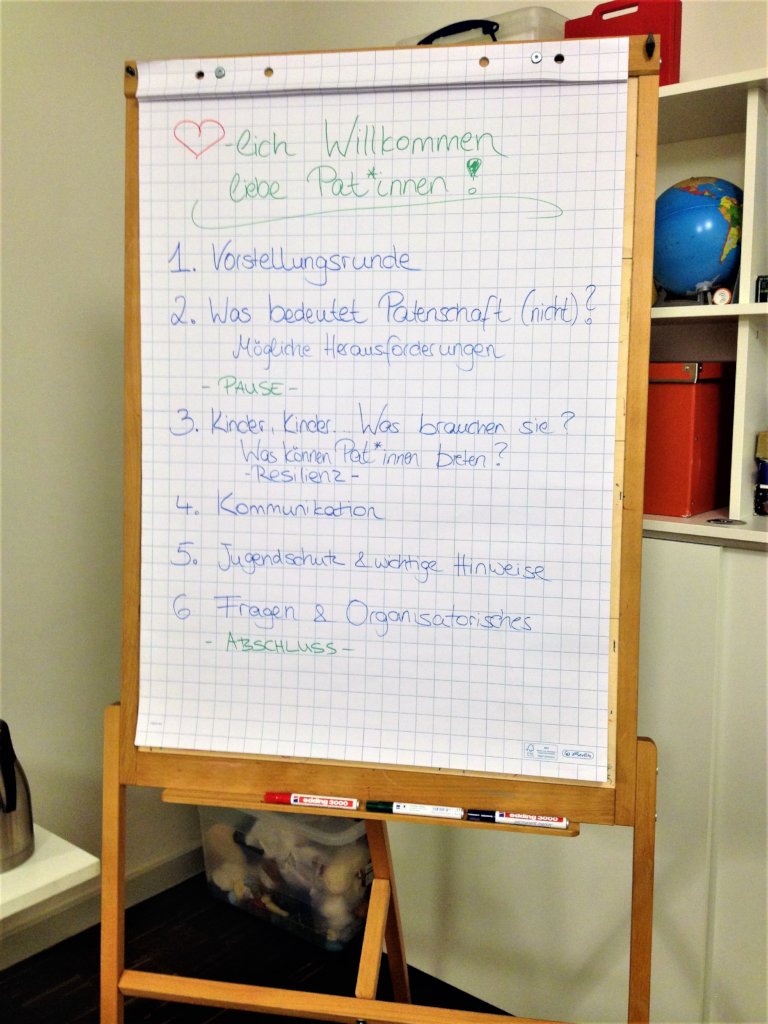 ♥-lich Willkommen
liebe Pat*innen!
1. Vorstellungsrunde
2. Was bedeutet Patenschaft (nicht)?!
Mögliche Herausforderungen
- PAUSE -
3. Kinder, Kinder... Was brauchen sie?
Was können Pat*innen bieten?
- Resilienz -
4. Kommunikation
5. Jugendschutz & wichtige Hinweise
6 Fragen & Organisatorisches
- ABSCHLUSS -
edding 3000
edding 3000